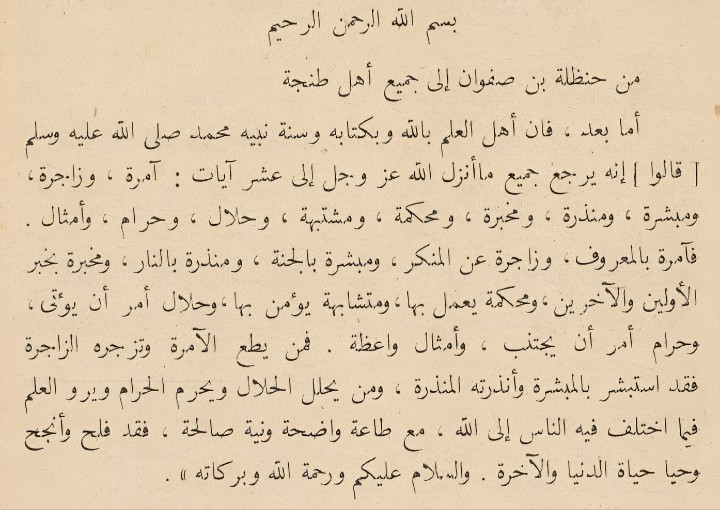 بسم الله الرحمن الرحيم
من حنظلة بن صفوان إلى جميع أهل طنجة
أما بعد ، فان أهل العلم بالله وبكتابه وسنة نبيه محمد صلى الله عليه وسلم
[ قالوا ] إنه يرجع جميع ماأنزل الله عز وجل إلى عشر آيات : آمرة ، وزاجرة،
ومبشرة ، ومنذرة ، ومخبرة ، ومحكمة ، ومشتبهة ، وحلال ، وحرام ، وأمثال .
فآمرة بالمعروف، وزاجرة عن المنكر ، ومبشرة بالجنة ، ومنذرة بالنار ، ومخبرة بخبر
الأولين والآخرين ،ومحكمة يعمل بها،ومتشابهة يؤمن بها،وحلال أمر أن يؤتى،
وحرام أمر أن يجتنب ، وأمثال واعظة . فمن يطع الآمرة وتزجره الزاجرة
فقد استبشر بالمبشرة وأنذرته المنذرة ، ومن يحلل الحلال ويحرم الحرام ويرو العلم
فيما اختلف فيه الناس إلى الله ، مع طاعة واضحة ونية صالحة ، فقد فلح وأنجح
وحيا حياة الدنيا والآخرة . والسلام عليكم ورحمة الله وبركاته » .